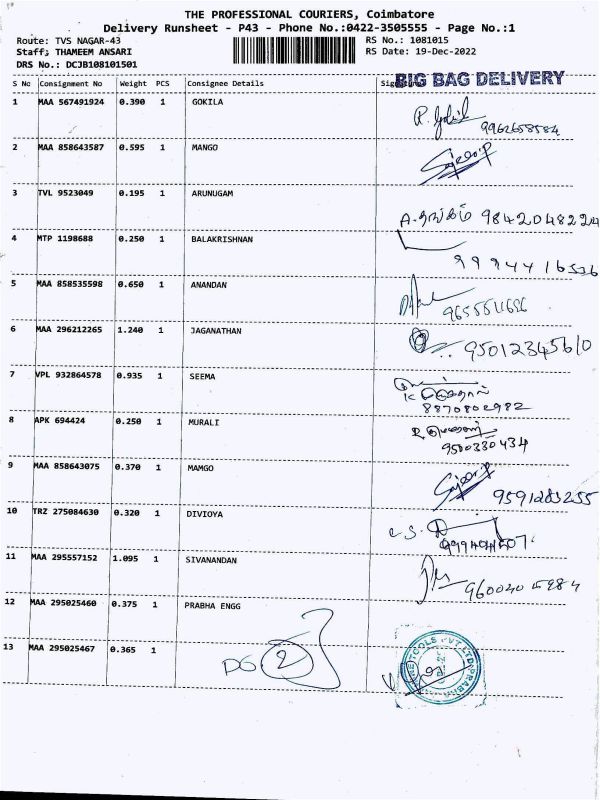 THE PROFESSIONAL COURIERS, Coimbatore
Delivery Runsheet - P43 - Phone No.:0422-3505555 - Page No.:1
Route: TVS NAGAR-43 RS No.: 1081015
Staff: THAMEEM ANSARI RS Date: 19-Dec-2022
DRS No.: DCJB108101501
BIG BAG DELIVERY
S No Consignment No Weight PCS Consignee Details
1 MAA 567491924 0.390 1 GOKILA
9962658584
2 MAA 858643587 0.595 1 MANGO
3 TVL 9523049 0.195 1 ARUNUGAM
9842048224
4 MTP 1198688 0.250 1 BALAKRISHNAN
9994416536
5 MAA 858535598 0.650 1 ANANDAN
6 MAA 296212265 1.240 1 JAGANATHAN
95012345610
7 VPL 932864578 0.935 1 SEEMA
8870802982
8 APK 694424 0.250 1 MURALI
9500330434
9 MAA 858643075 0.370 1 MAMGO
10 TRZ 275084630 0.320 1 DIVIOYA
11 MAA 295557152 1.095 1 SIVANANDAN
12 MAA 295025460 0.375 1 PRABHA ENGG
13 MAA 295025467 0.365 1
DG 2